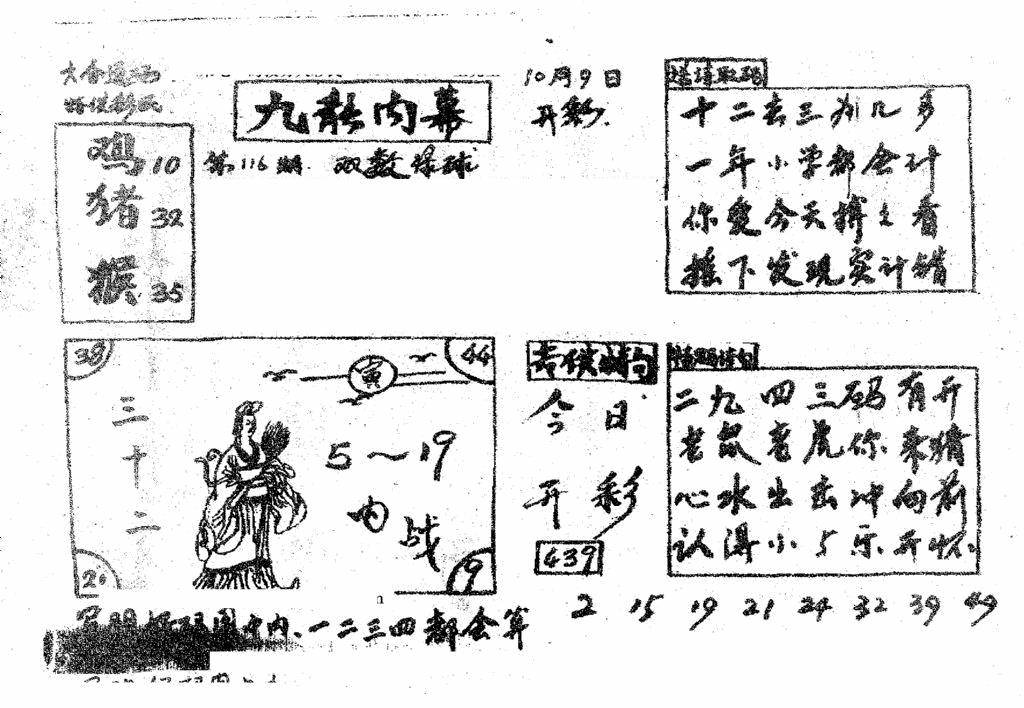 九龍内幕
第116期 双数绿球
10月9日
开彩
鸡10
猪32
猴35
十二去三为几多
一年小学都会计
你要今天搏之看
摇下发现实计错
38
44
寅
三十二
5~19
内战
20
19
今日
开彩
439
二九四三码有开
老鼠老虎你来猜
心水出击冲向前
认得小5乐开怀
2 15 19 21 24 32 39 49
内、一二三四都会算